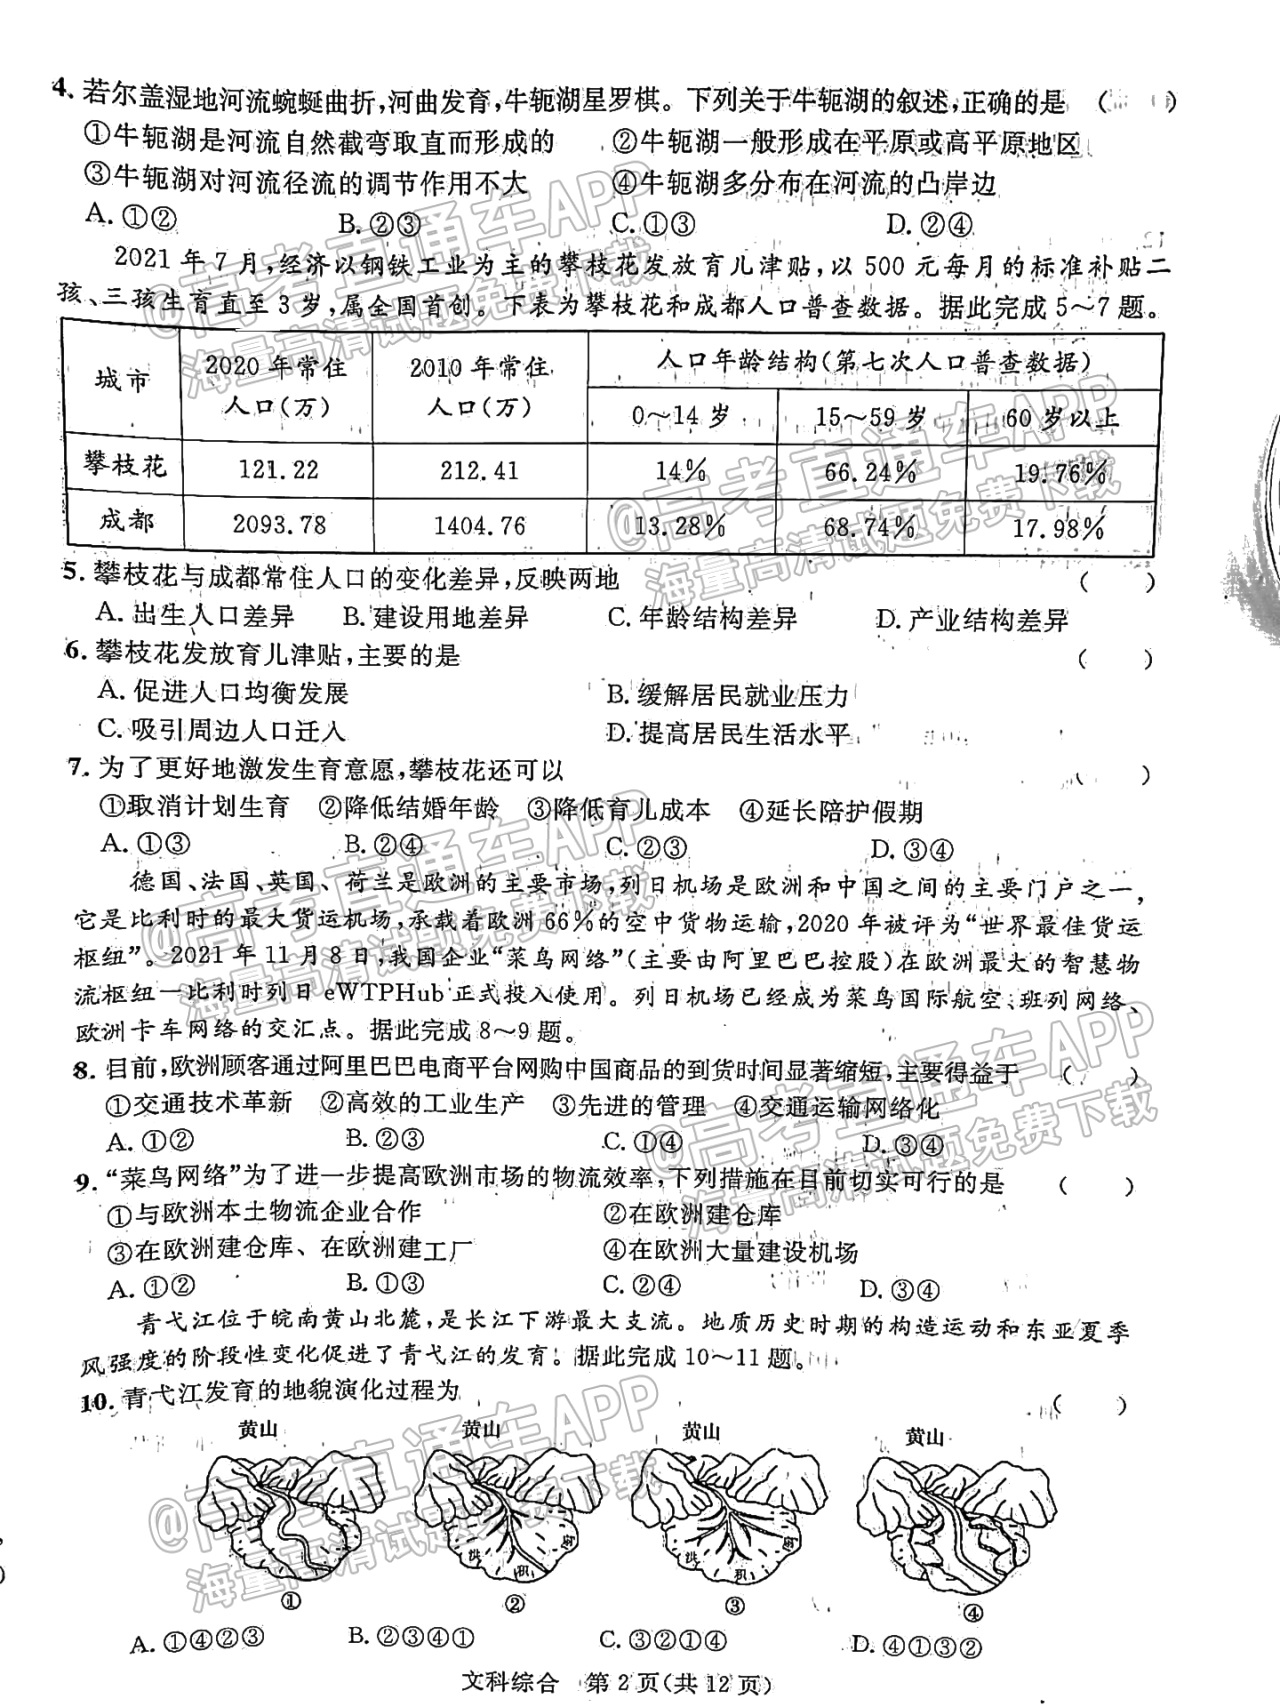 4. 若尔盖湿地河流蜿蜒曲折,河曲发育,牛轭湖星罗棋。下列关于牛轭湖的叙述,正确的是 ( )
①牛轭湖是河流自然截弯取直而形成的 ②牛轭湖一般形成在平原或高平原地区
③牛轭湖对河流径流的调节作用不大 ④牛轭湖多分布在河流的凸岸边
A. ①② B. ②③ C. ①③ D. ②④
2021年7月,经济以钢铁工业为主的攀枝花发放育儿津贴,以500元每月的标准补贴二
孩、三孩生育直至3岁,属全国首创。下表为攀枝花和成都人口普查数据。据此完成5~7题。
城市 2020年常住人口(万) 2010年常住人口(万) 人口年龄结构(第七次人口普查数据)
0~14岁 15~59岁 60岁以上
攀枝花 121.22 212.41 14% 66.24% 19.76%
成都 2093.78 1404.76 13.28% 68.74% 17.98%
5. 攀枝花与成都常住人口的变化差异,反映两地 ( )
A. 出生人口差异 B. 建设用地差异 C. 年龄结构差异 D. 产业结构差异
6. 攀枝花发放育儿津贴,主要的是 ( )
A. 促进人口均衡发展 B. 缓解居民就业压力
C. 吸引周边人口迁入 D. 提高居民生活水平
7. 为了更好地激发生育意愿,攀枝花还可以 ( )
①取消计划生育 ②降低结婚年龄 ③降低育儿成本 ④延长陪护假期
A. ①③ B. ②④ C. ②③ D. ③④
德国、法国、英国、荷兰是欧洲的主要市场,列日机场是欧洲和中国之间的主要门户之一,
它是比利时的最大货运机场,承载着欧洲66%的空中货物运输,2020年被评为“世界最佳货运
枢纽”。2021年11月8日,我国企业“菜鸟网络”(主要由阿里巴巴控股)在欧洲最大的智慧物
流枢纽一比利时列日eWTPHub正式投入使用。列日机场已经成为菜鸟国际航空、班列网络、
欧洲卡车网络的交汇点。据此完成8~9题。
8. 目前,欧洲顾客通过阿里巴巴电商平台网购中国商品的到货时间显著缩短,主要得益于 ( )
①交通技术革新 ②高效的工业生产 ③先进的管理 ④交通运输网络化
A. ①② B. ②③ C. ①④ D. ③④
9. “菜鸟网络”为了进一步提高欧洲市场的物流效率,下列措施在目前切实可行的是 ( )
①与欧洲本土物流企业合作 ②在欧洲建仓库
③在欧洲建仓库、在欧洲建工厂 ④在欧洲大量建设机场
A. ①② B. ①③ C. ②④ D. ③④
青弋江位于皖南黄山北麓,是长江下游最大支流。地质历史时期的构造运动和东亚夏季
风强度的阶段性变化促进了青弋江的发育。据此完成10~11题。
10. 青弋江发育的地貌演化过程为 ( )
黄山 黄山 黄山 黄山
洪 积 扇 洪 积 扇
① ② ③ ④
A. ①④②③ B. ②③④① C. ③②①④ D. ④①③②
文科综合 第2页(共12页)
@高考直通车APP
海量高清试题免费下载
@高考直通车APP
海量高清试题免费下载
@高考直通车APP
海量高清试题免费下载
@高考直通车APP
海量高清试题免费下载
@高考直通车APP
海量高清试题免费下载